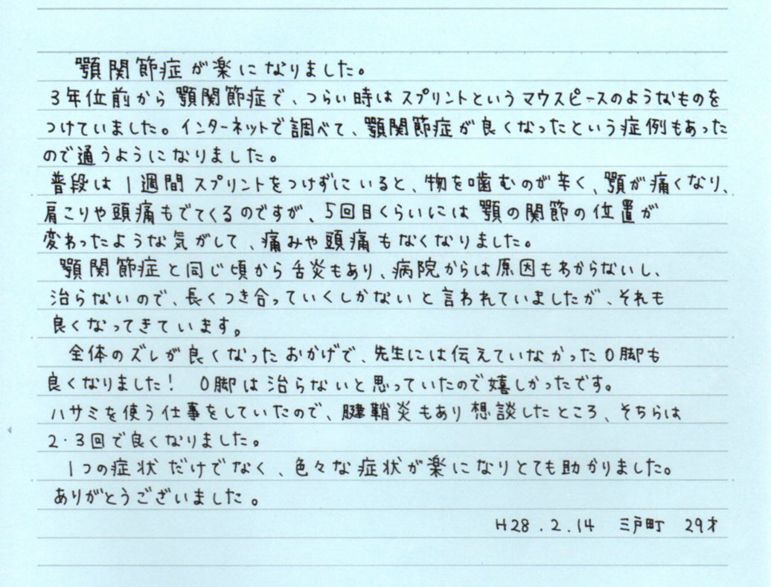 顎関節症が楽になりました。
3年位前から顎関節症で、つらい時はスプリントというマウスピースのようなものを
つけていました。インターネットで調べて、顎関節症が良くなったという症例もあった
ので通うようになりました。
普段は1週間スプリントをつけずにいると、物を噛むのが辛く、顎が痛くなり、
肩こりや頭痛もでてくるのですが、5回目くらいには顎の関節の位置が
変わったような気がして、痛みや頭痛もなくなりました。
顎関節症と同じ頃から舌炎もあり、病院からは原因もわからないし、
治らないので、長くつき合っていくしかないと言われていましたが、それも
良くなってきています。
全体のズレが良くなったおかげで、先生には伝えていなかったO脚も
良くなりました! O脚は治らないと思っていたので嬉しかったです。
ハサミを使う仕事をしていたので、腱鞘炎もあり想談したところ、そちらは
2・3回で良くなりました。
1つの症状だけでなく、色々な症状が楽になりとても助かりました。
ありがとうございました。
H28.2.14 三戸町 29才